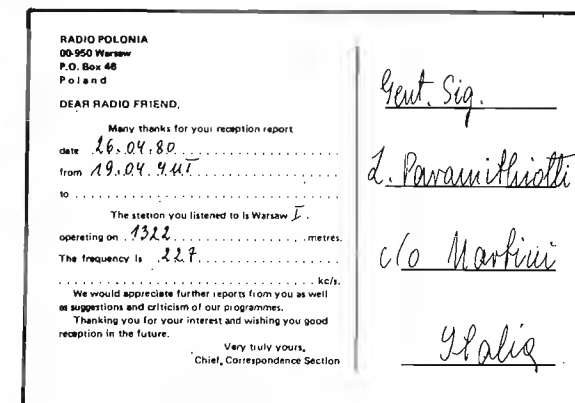 RADIO POLONIA
00-950 Warsaw
P.O. Box 46
Poland
DEAR RADIO FRIEND,
Many thanks for your reception report
date 26.04.80
from 19.04. GMT
to
The station you listened to is Warsaw I.
operating on 1322 metres.
The frequency is 227
kc/s.
We would appreciate further reports from you as well
as suggestions and criticism of our programmes.
Thanking you for your interest and wishing you good
reception in the future.
Very truly yours,
Chief, Correspondence Section
Gent. Sig.
L. Pavamithiotti
c/o Martini
Italia